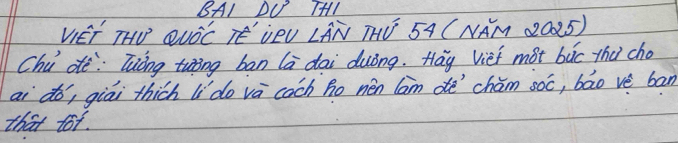 BÀI DỰ THI
VIẾT THƯ QUỐC TẾ UPU LẦN THỨ 54 (NĂM 2025)
Chủ đề: Tưởng tượng bạn là đại dương. Hãy viết một bức thư cho
ai đó, giải thích lí do và cách họ nên làm để chăm sóc, bảo vệ bạn
thật tốt.